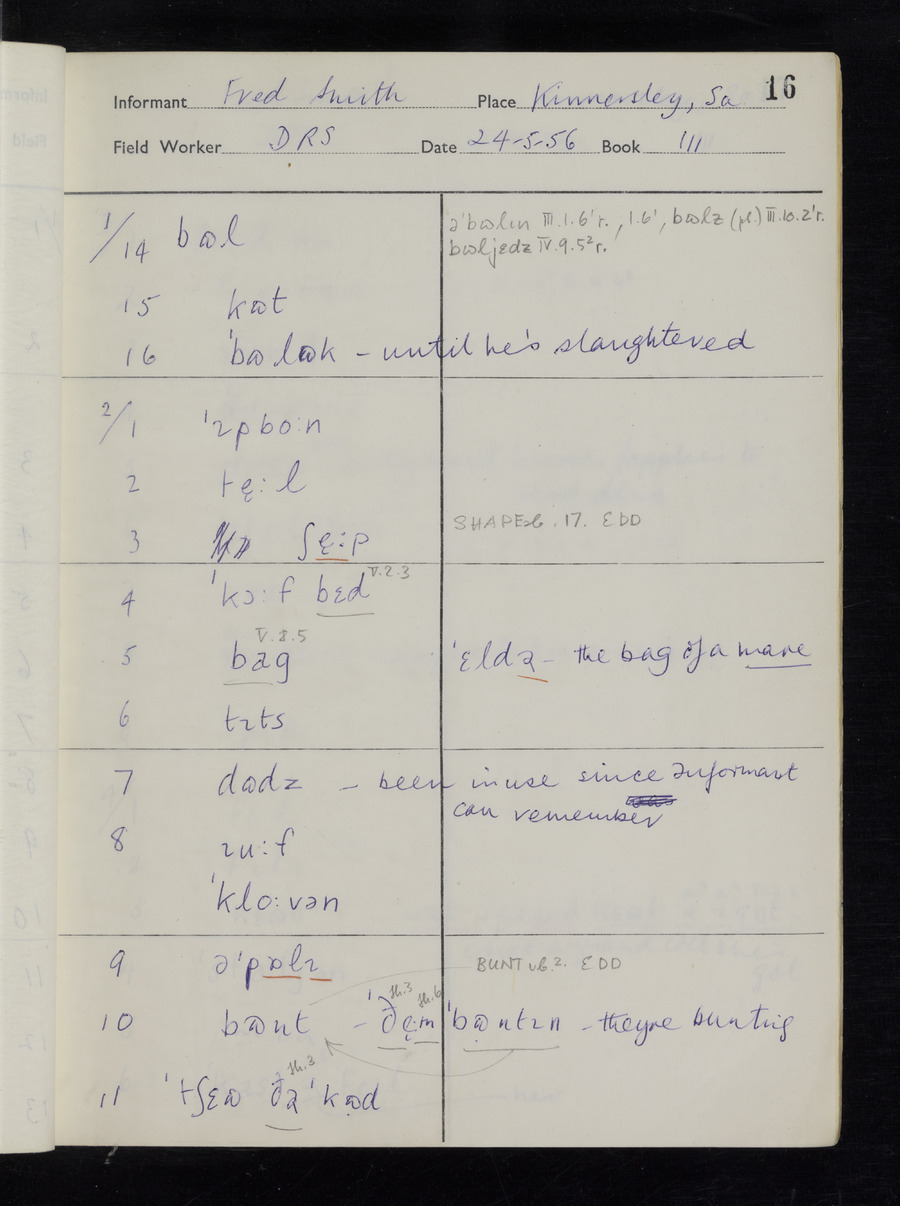 Informant Fred Smith Place Kinnersley, Sa 16
Field Worker DRS Date 24-5-56 Book III
1/14 bɷl ə'bɷlın III.1.6'r., 1.6', bɷlz (pl.) III.10.2'r.
bɷljedz IV.9.5²r.
15 kɷt
16 'bɷlək – until he's slaughtered
2/1 'ɪpbo:n
2 tę:l
3 ʃę:p SHAPE sb. 17. EDD
4 'kɔ:f bɛd V.2.3
V.8.5
5 bag 'ɛldə – the bag of a mare
6 tɪts
7 dɷdz – been in use since informant
can remember
8 ɹu:f
'klo:vən
9 ə'pɷlɪ BUNT vb.2. EDD
10 bɷnt – 'ðę:m 'bɷntɪn – theyre bunting
11 'tʃɛɷ ðə 'kɷd